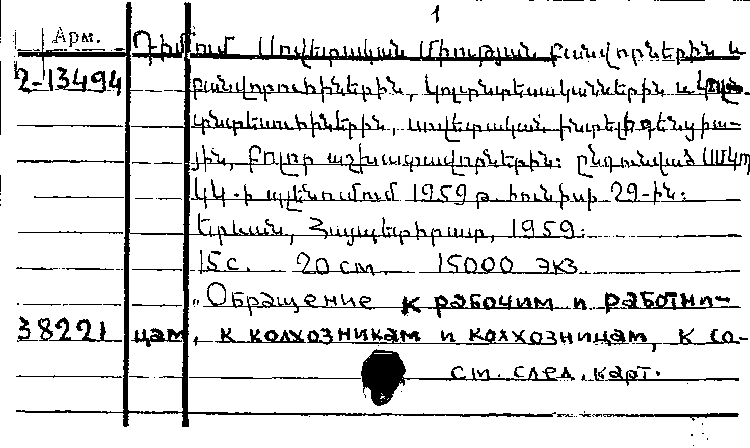 1
Арм. Դիմում Սովետական Միության բանվորներին և
2-13494 բանվորուհիներին, կոլտնտեսականներին և կոլ-
տնտեսուհիներին, սովետական ինտելիգենցիա-
յին, բոլոր աշխատավորներին: Ընդունված ՍՄԿՊ
ԿԿ-ի պլենումում 1959 թ. հունիսի 29-ին:
Երևան, Հայպետհրատ, 1959.
15 с. 20 см. 15000 экз
„Обращение к рабочим и работни-
38221 цам, к колхозникам и колхозницам, к со-
см. след. карт.